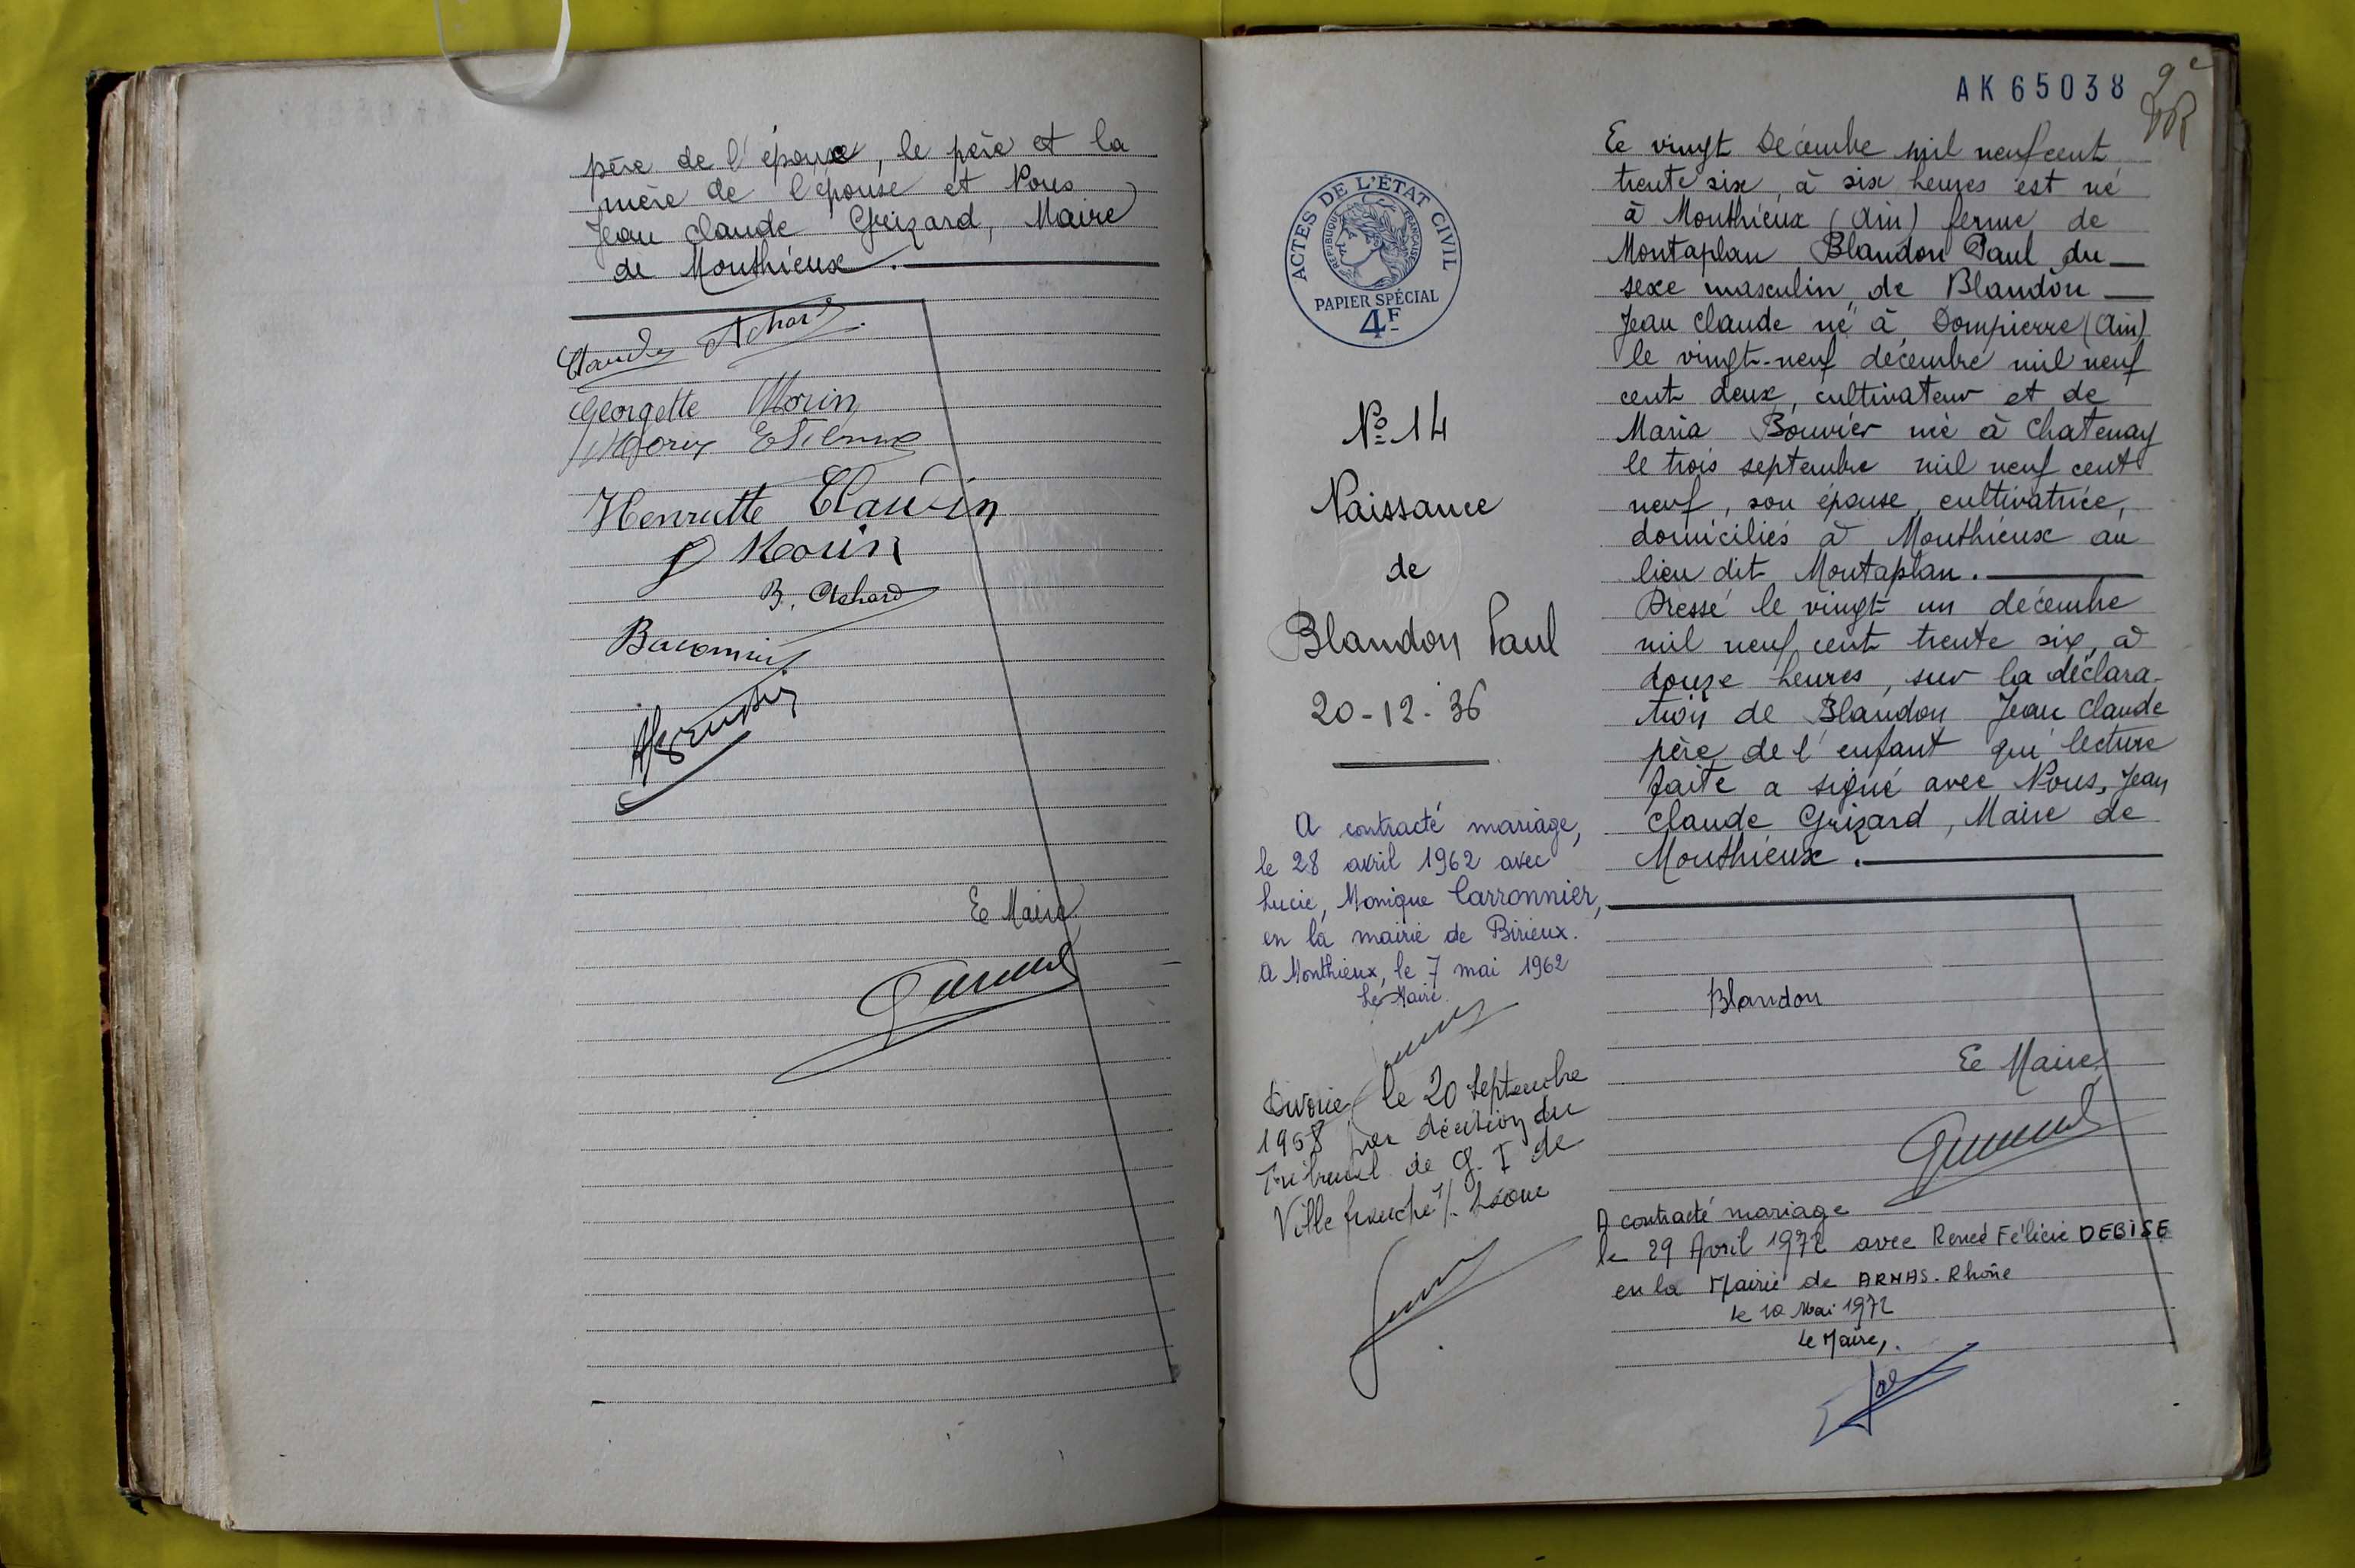 père de l'épouxe, le père et la
mère de l'épouse et Nous
Jean Claude Grizard, Maire
de Monthieux.
Claude Achard
Georgette Morin
Morin Etienne
Henriette Clauvin
Morin
B. Achard
Le Maire
AK 65038
9e
ACTES DE L'ÉTAT CIVIL
RÉPUBLIQUE FRANÇAISE
PAPIER SPÉCIAL
4F
No 14
Naissance
de
Blandon Paul
20-12-36
A contracté mariage,
le 28 avril 1962 avec
Lucie, Monique Carronnier,
en la mairie de Birieux.
A Monthieux, le 7 mai 1962
Le Maire
Divorie le 20 Septembre
1968 par décision du
Tribunal de G. I de
Villefranche s/. Saône
Le vingt Décembre mil neuf cent
trente six, à six heures est né
à Monthieux (Ain) ferme de
Montaplan Blandon Paul du
sexe masculin, de Blandon
Jean Claude né à Dompierre (Ain)
le vingt-neuf décembre mil neuf
cent deux, cultivateur et de
Maria Bouvier né à Chatenay
le trois septembre mil neuf cent
neuf, son épouse, cultivatrice,
domiciliés à Monthieux au
lieu dit Montaplan.
Dressé le vingt un décembre
mil neuf cent trente six, à
douze heures, sur la déclara-
tion de Blandon Jean Claude
père de l'enfant qui lecture
faite a signé avec Nous, Jean
Claude Grizard, Maire de
Monthieux.
Blandon
Le Maire
A contracté mariage
le 29 Avril 1972 avec Renée Félicie DEBISE
en la Mairie de ARNAS-Rhône
le 10 Mai 1972
Le Maire,